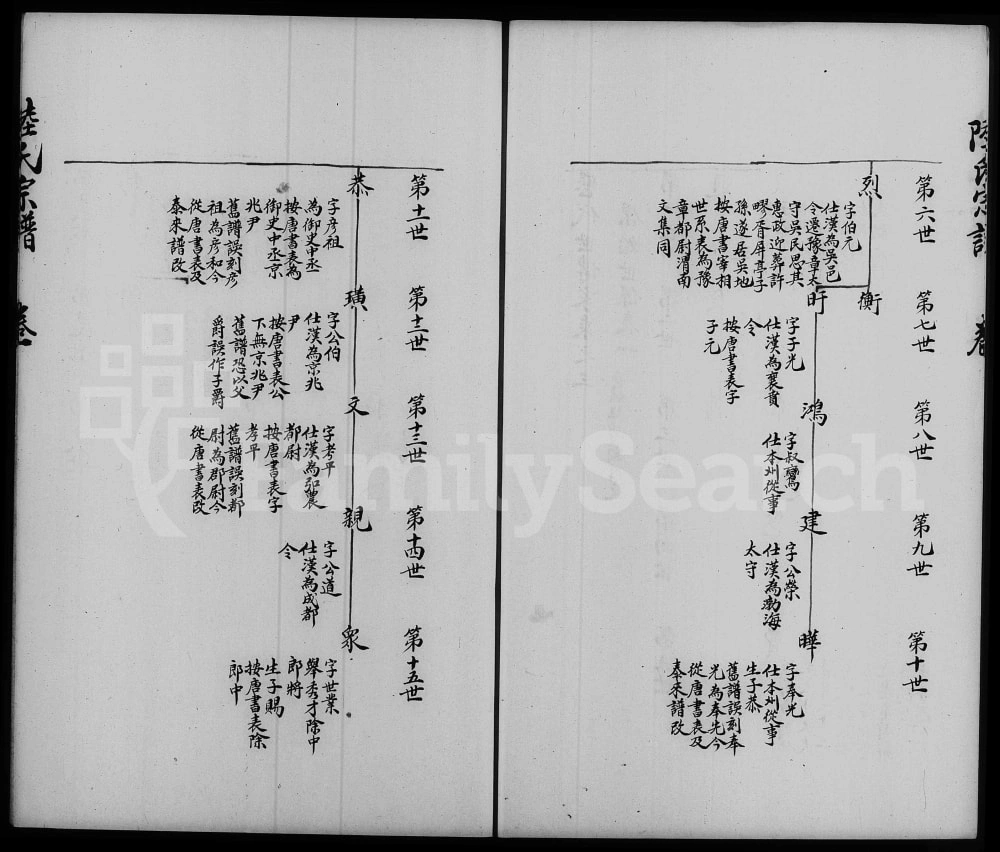 陸氏宗譜
卷
第六世
烈
字伯元
仕漢為吳邑
令遷豫章太
守吳民思其
惠政迎葬許
膠胥屏亭子
孫遂居吳地
按唐書宰相
世系表為豫
章都尉渭南
文集同
第七世
衡
旴
字子光
仕漢為襄賁
令
按唐書表字
子元
第八世
鴻
字叔鸞
仕本州從事
第九世
建
字公榮
仕漢為勃海
太守
第十世
曄
字奉光
仕本州從事
生子恭
舊譜誤刻奉
光為奉先今
從唐書表及
泰來譜改
第十一世
恭
字彥祖
為御史中丞
按唐書表為
御史中丞京
兆尹
舊譜誤刻彥
祖為彥和今
從唐書表及
泰來譜改
第十二世
璜
字公伯
仕漢為京兆
尹
按唐書表公
下無京兆尹
舊譜恐以父
爵誤作子爵
第十三世
文
字考平
仕漢為弘農
都尉
按唐書表字
孝平
舊譜誤刻都
尉為郡尉今
從唐書表改
第十四世
親
字公道
仕漢為成都
令
第十五世
眾
字世業
舉秀才除中
郎將
生子賜
按唐書表除
郎中
陸氏宗譜
卷一
FamilySearch